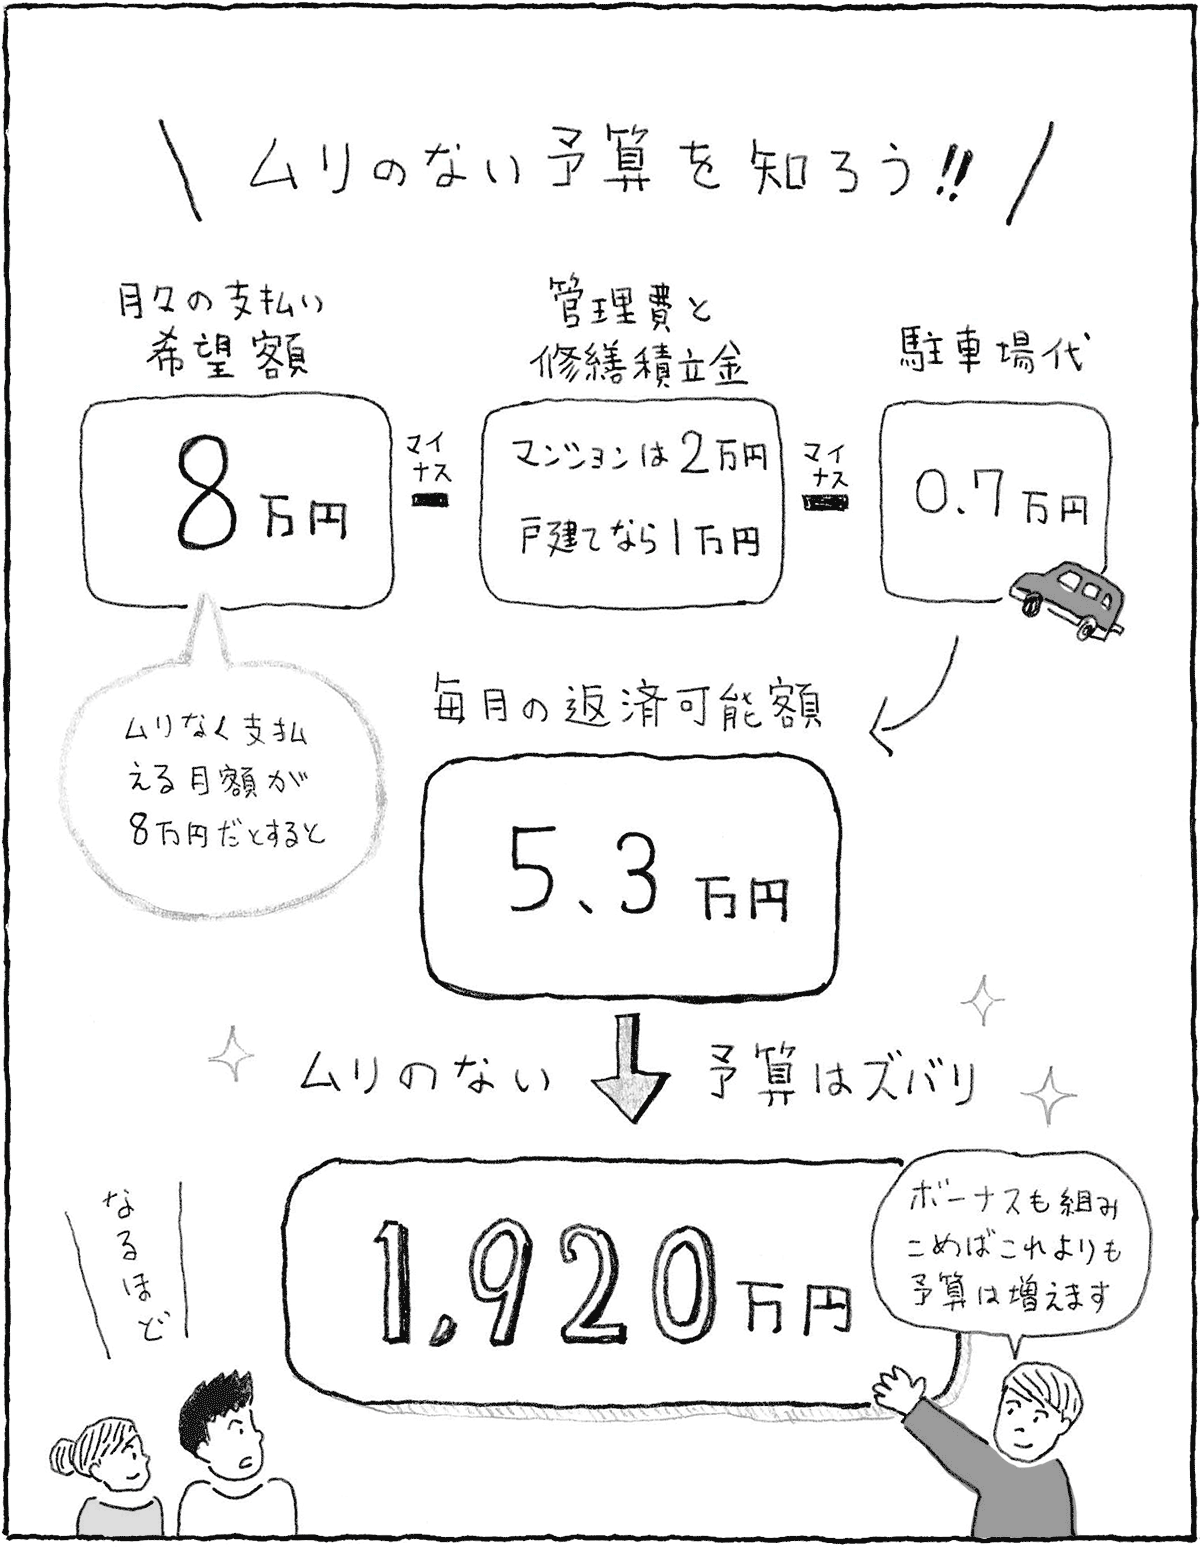 ムリのない予算を知ろう!!
月々の支払い
希望額
8万円
マイ
ナス
管理費と
修繕積立金
マンションは2万円
戸建てなら1万円
マイ
ナス
駐車場代
0.7万円
ムリなく支払
える月額が
8万円だとすると
毎月の返済可能額
5.3万円
ムリのない 予算はズバリ
1,920万円
ボーナスも組み
こめばこれよりも
予算は増えます
なるほど